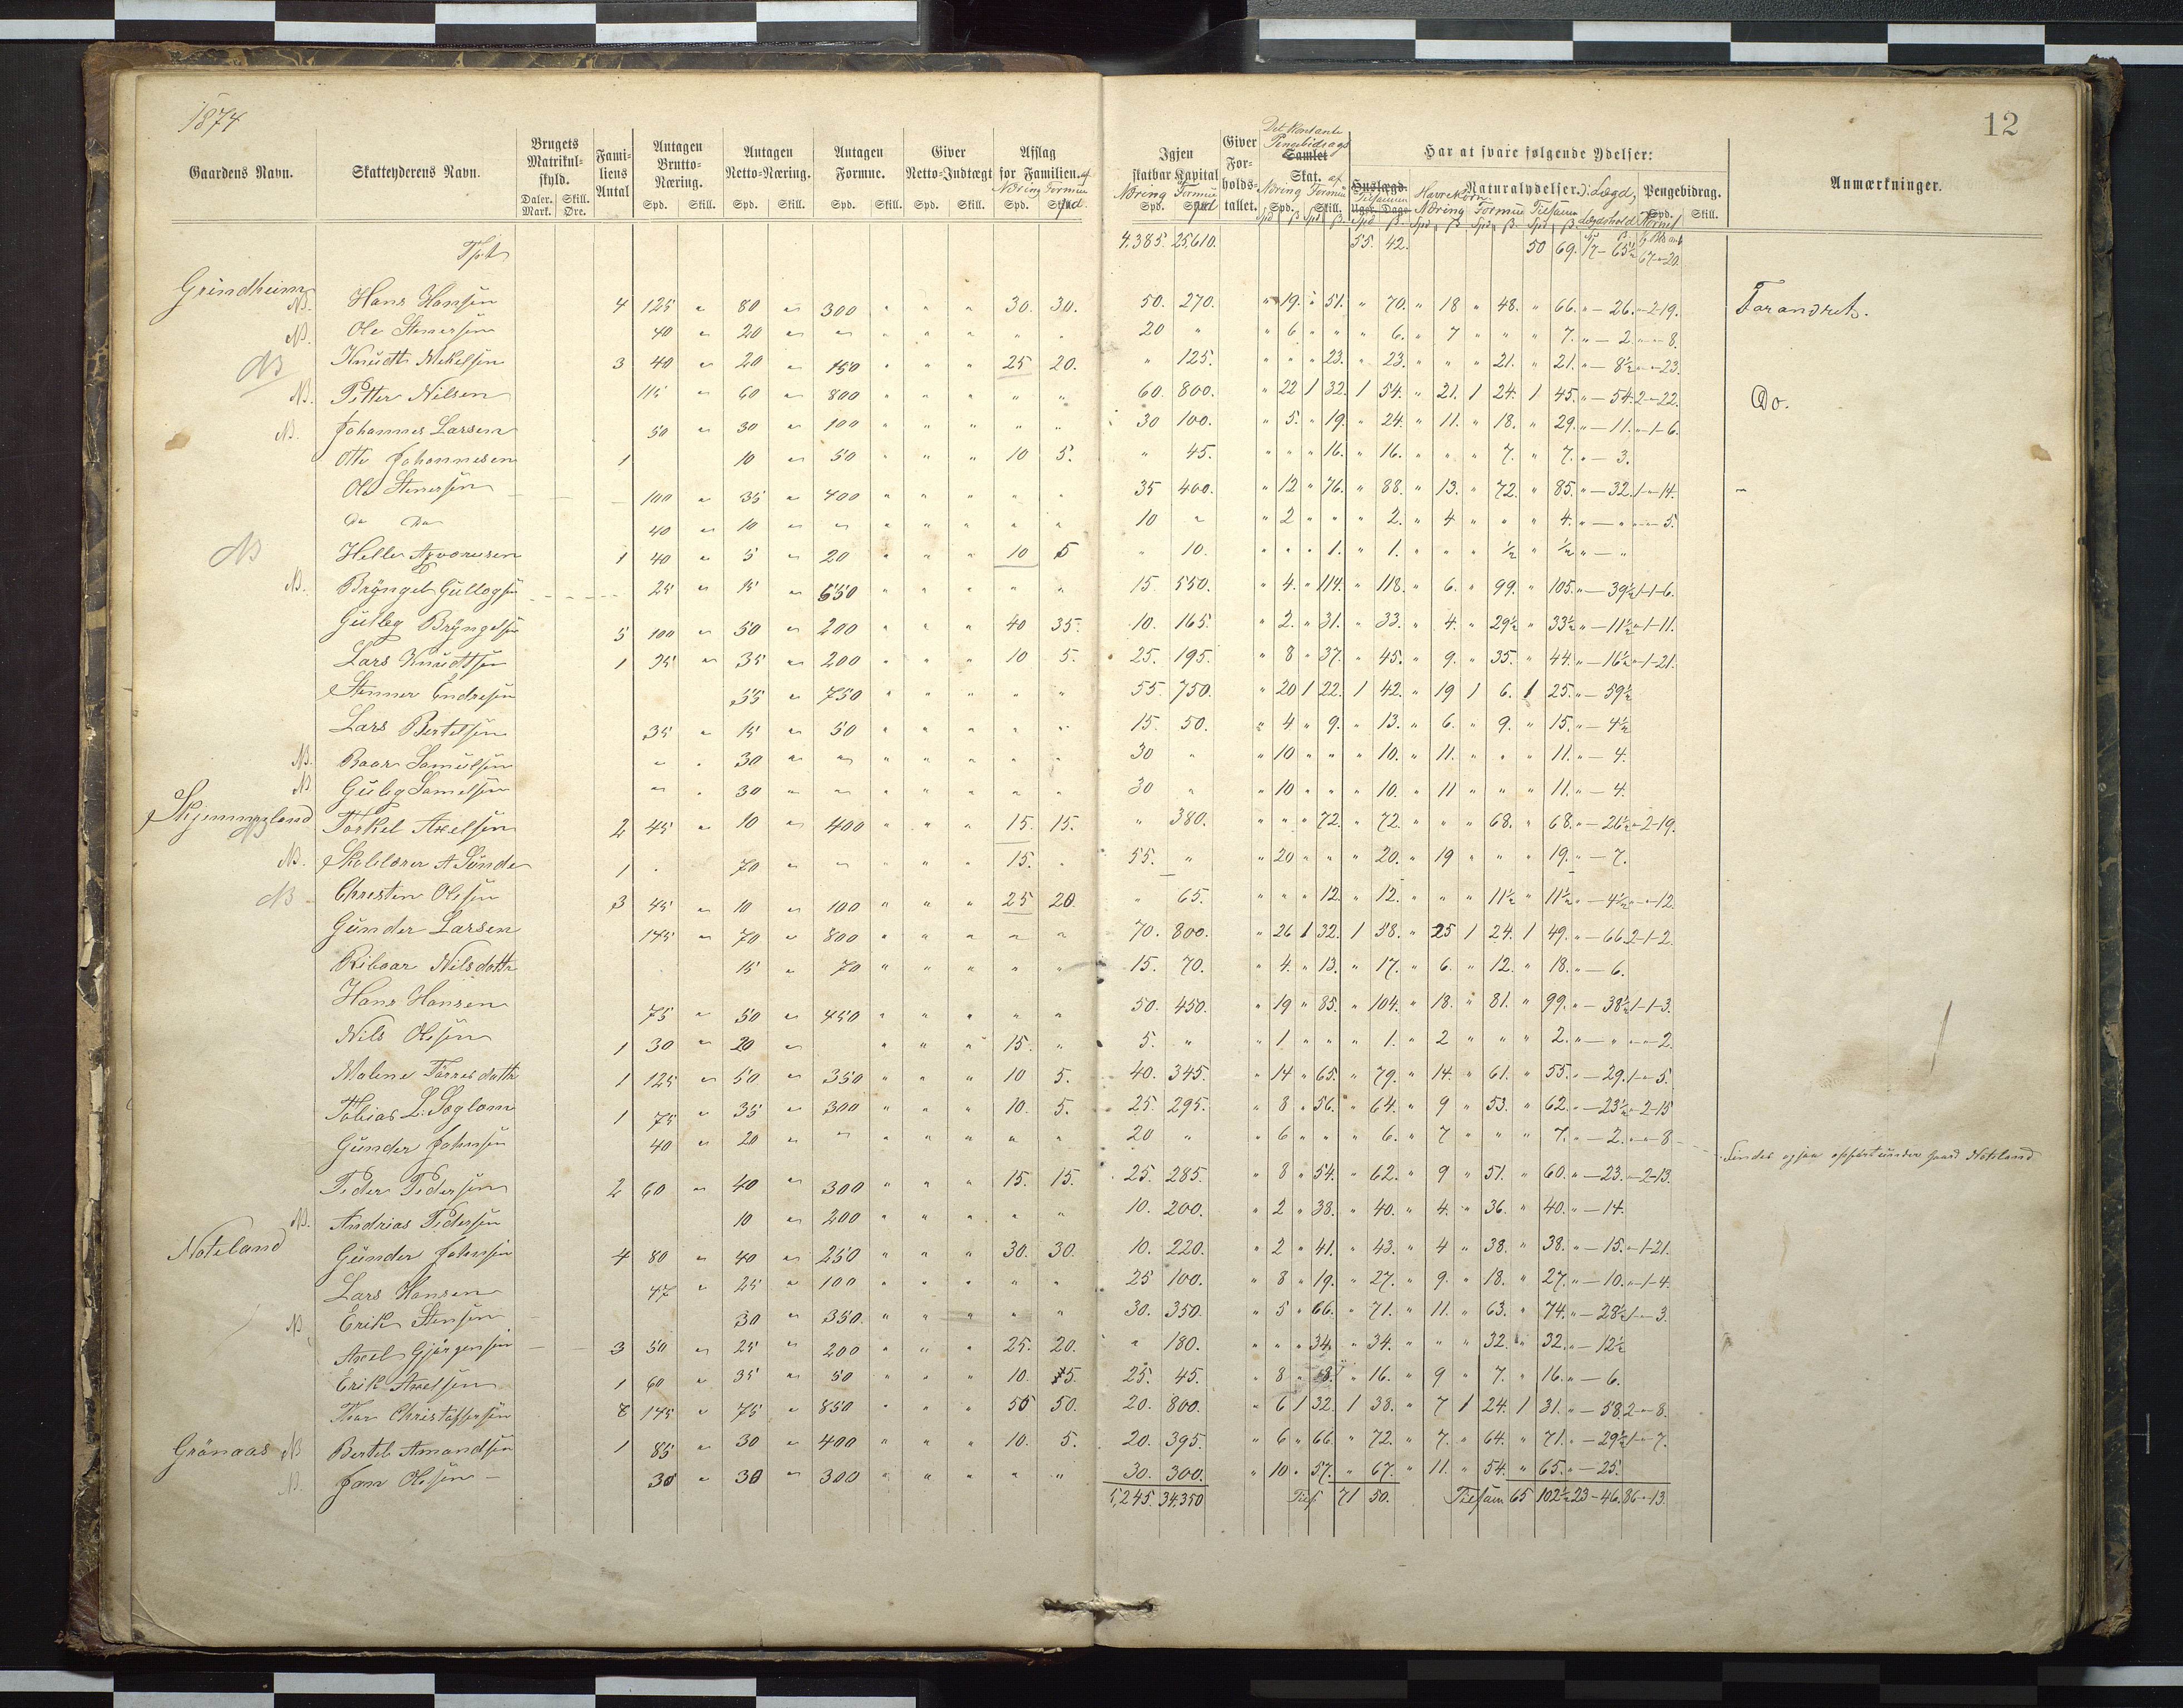 1874
12
Gaardens Navn. Skatteyderens Navn. Brugets Matrikulskyld. Daler. Mark. Skill. Øre. Familiens Antal Antagen Brutto-Næring. Spd. Skill. Antagen Netto-Næring. Spd. Skill. Antagen Formue. Spd. Skill. Giver Netto-Indtægt Spd. Skill. Afslag for Familien. af Næring Formue Spd. Igjen skatbar Kapital af Næring Formue Spd. Giver Forholdstallet. Det Kontante Pengebidrags Samlet Skat. af Næring Formue Spd. Skill. Tilsamen Har at svare følgende Ydelser: Naturalydelser. i Lægd, Havrekorn Næring Formue Tilsam Lægdshold Pengebidrag. Kornet Spd. Skill. Anmærkninger.
Tpt 4.385. 25610. 55. 42. 50 69. 17 - 65½ 67 - 20.
Grindheim NB. Hans Hansen 4 125 " 80 " 300 " " " 30. 30. 50. 270. " 19. " 51. " 70. " 18 " 48. " 66. " - 26. " - 2 - 19. Farandret.
NB. Ole Stenersen 40 " 20 " " " " " " " 20 " " 6 " " " 6. " 7 " " " 7. " - 2. " - " - 8.
NB Knudt Mikelsen 3 40 " 20 " 150 " " " 25 20. " 125. " " " 23. " 23. " " " 21. " 21. " - 8½ " - " - 23.
NB. Petter Nilsen 115 " 60 " 800 " " " " " 60. 800. " 22 1 32. 1 54. " 21. 1 24. 1 45. " - 54. 2 - " - 22. Do.
NB. Johannes Larsen 50 " 30 " 100 " " " " " 30 100. " 5. " 19. " 24. " 11. " 18. " 29. " - 11. " - 1 - 6.
Otte Johannesen 1 10 " 50 " " " 10 5. " 45. " " " 16. " 16. " " " 7. " 7. " - 3.
Ole Stenersen 100 " 35 " 400 " " " " " 35 400. " 12 " 76. " 88. " 13. " 72. " 85. " - 32. 1 - " - 14.
do do 40 " 10 " " " " " " " 10 " " 2 " " " 2. " 4 " " " 4. " - " " - " - 5.
NB Helle 1 40 " 5 " 20 " " " 10 5 " 10. " " " 1. " 1. " " " ½ " ½ " - "
NB. Bryngel Gullegsen 25 " 15 " 550 " " " " " 15. 550. " 4. " 114. " 118. " 6. " 99. " 105. " - 39½ 1 - 1 - 6.
Guleg Bryngelsen 5 100 " 50 " 200 " " " 40 35. 10. 165. " 2. " 31. " 33. " 4. " 29½ " 33½ " - 11½ " - 1 - 11.
Lars Knudtsen 1 95 " 35 " 200 " " " 10 5. 25. 195. " 8 " 37. " 45. " 9. " 35. " 44. " - 16½ " - 1 - 21.
Stenner Endresen 55 " 750 " " " " " 55. 750. " 20 1 22. 1 42. " 19 1 6. 1 25. " - 59½
Lars Bertelsen 35 " 15 " 50 " " " " " 15. 50. " 4 " 9. " 13. " 6. " 9. " 15. " - 4½
NB. Roar Samuelsen " " 30 " " " " " " " 30 " " 10 " " " 10. " 11. " " " 11. " - 4.
NB Guleg Samelsen " " 30 " " " " " " " 30 " " 10 " " " 10. " 11 " " " 11. " - 4.
Torkel Axelsen 2 45 " 10 " 400 " " " 15. 15. " 380. " " " 72. " 72. " " " 68. " 68. " - 26½ " - 2 - 19.
NB. Skolelærer A Sunde 1 " 70 " " " " " 15. " 55. " " 20 " " " 20. " 19 " " " 19. " - 7.
NB Christen Olsen 3 45 " 10 " 100 " " " 25 20. " 65. " " " 12. " 12. " " " 11½ " 11½ " - 4½ " - " - 12.
Gunder Larsen 145 " 70 " 800 " " " " " 70. 800. " 26 1 32. 1 58. " 25 1 24. 1 49. " - 66. 2 - 1 - 2.
Riboar Nilsdattr 15 " 70 " " " " " 15. 70. " 4. " 13. " 17. " 6. " 12. " 18. " - 6.
Hans Hansen 75 " 50 " 450 " " " " " 50. 450. " 19 " 85. " 104. " 18. " 81. " 99. " - 38½ 1 - 1 - 3.
Nils Olsen 1 30 " 20 " " " " 15. " 5. " " 1 " " " 1. " 2 " " " 2. " - " " - " - 2.
Malene Törresdattr 1 125 " 50 " 350 " " " 10 5. 40. 345. " 14 " 65. " 79. " 14. " 61. " 55. " - 29. 1 - " - 5.
Tobias L. Soglam 1 75 " 35 " 300 " " " 10. 5. 25. 295. " 8 " 56. " 64. " 9 " 53. " 62. " - 23½ " - 2 - 15
Gunder Johnsen 40 " 20 " " " " " " " 20 " " 6 " " " 6. " 7 " " " 7. " - 2. " - " - 8 Findes ogsaa opført under Gaard Noteland
Peder Pedersen 2 60 " 40 " 300 " " " 15. 15. 25. 285. " 8 " 54. " 62. " 9 " 51. " 60. " - 23. " - 2 - 13.
NB. Andrias Pedersen 10 " 200 " " " " " 10. 200. " 2 " 38. " 40. " 4. " 36. " 40. " - 14.
Noteland Gunder Johnsen 4 80 " 40 " 250 " " " 30. 30. 10. 220. " 2 " 41. " 43. " 4 " 38. " 38. " - 15. " - 1 - 21.
Lars Hansen 47 " 25 " 100 " " " " " 25 100. " 8 " 19. " 27. " 9. " 18. " 27. " - 10. " - 1 - 4.
NB Erik Stensen 30 " 350 " " " " " 30. 350. " 5 " 66. " 71. " 11. " 63. " 74. " - 28½ 1 - " - 3.
Axel Gjörgensen 3 50 " 25 " 200 " " " 25. 20. " 180. " " " 34. " 34. " " " 32. " 32. " - 12½
Erik Axelsen 1 60 " 35 " 50 " " " 10. 5. 25. 45. " 8 " 8. " 16. " 9 " 7. " 16. " - 6.
Thor Christoffersen 8 145 " 75 " 850 " " " 55 50. 20. 800. " 6 1 32. 1 38. " 7 1 24. 1 31. " - 58. 2 - " - 8.
Grönaas NB Bertel Amandsen 1 85 " 30 " 400 " " " 10. 5. 20. 395. " 6 " 66. " 72. " 7. " 64. " 71. " - 29½ 1 - " - 7.
NB. Jon Olsen 30 " 30 " 300 " " " " " 30. 300. " 10 " 57. " 67. " 11. " 54. " 65. " - 25.
5,245. 34.350 Tils 71 50. Tilsam 65 102½ 23 - 46. 86 - 13.